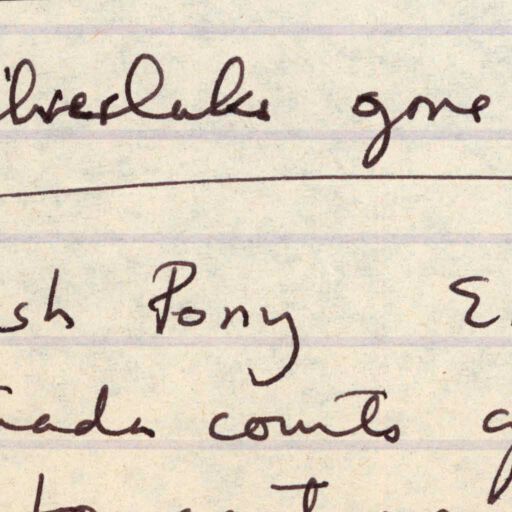 ilverlake gone
sh Pony E
ada counts g